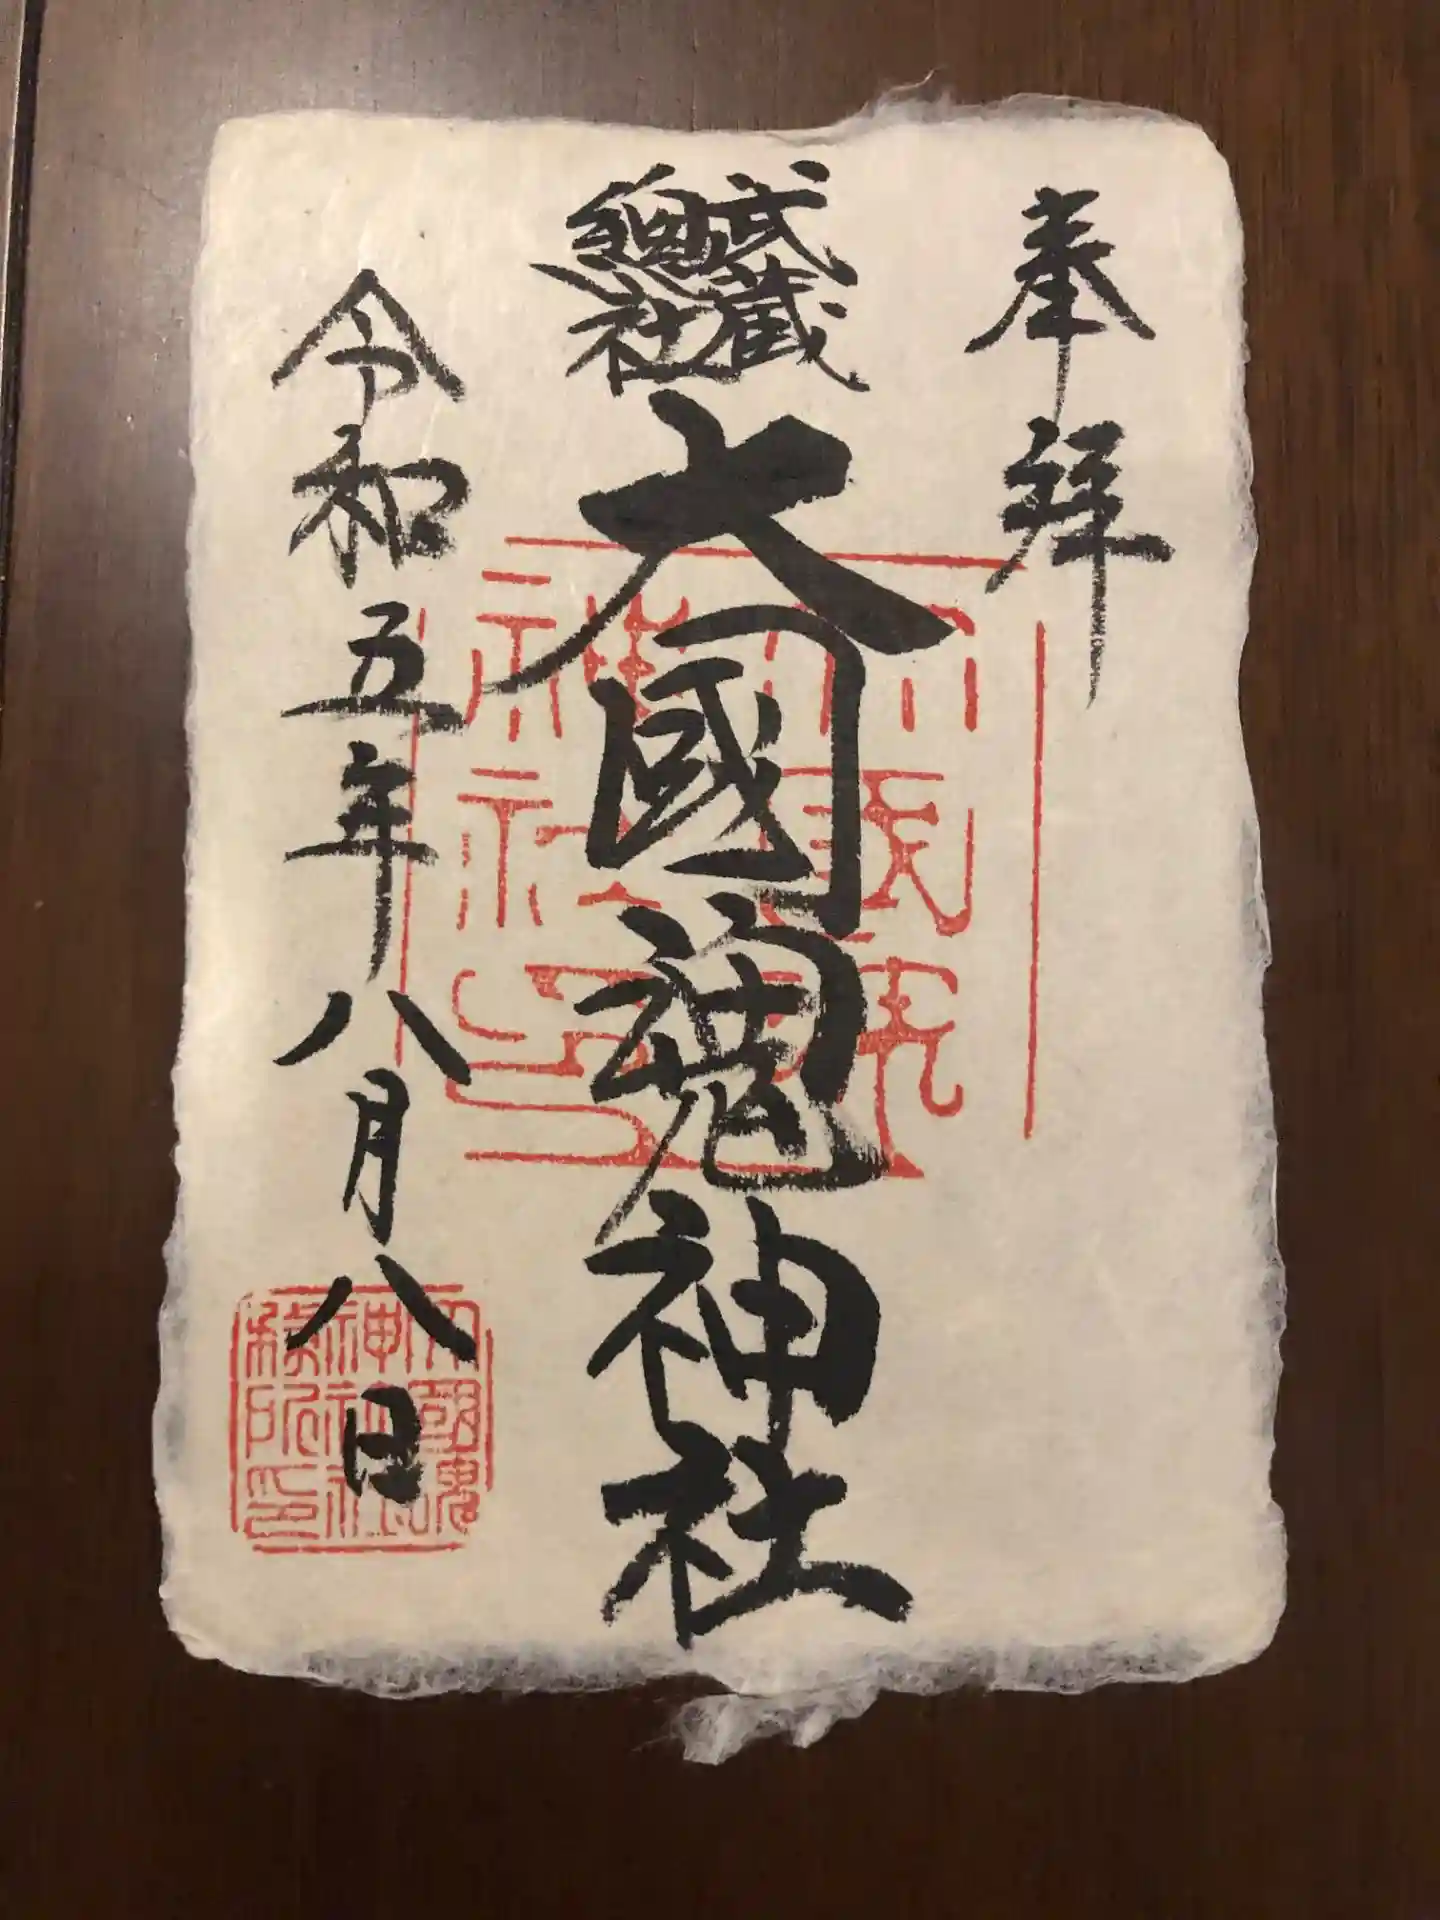 奉拝
武蔵
總社
大國魂神社
令和五年八月八日
大國魂
神社印
大國魂
神社社
務所印